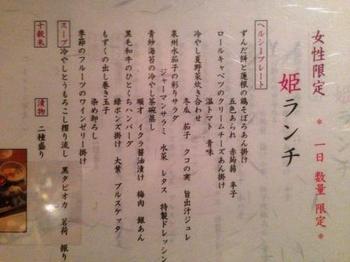 女性限定 ＊一日 数量 限定＊
姫ランチ
ヘルシープレート
ずんだ餅と蓮根の鶏そぼろあん掛け
五色あられ 赤蒟蒻 麩子
ロールキャベツのクリームチーズあん掛け
温トマト 青味
冷やし夏野菜炊き合わせ
冬瓜 茄子 クコの実 旨出汁ジュレ
泉州水茄子の彩りサラダ
ジャーマンサラミ 水菜 レタス 特製ドレッシング
青紗海苔の冷やし茶碗蒸し
順才 イクラ醤油漬け 梅肉 銀あん
黒毛和牛のひとくちハンバーグ
緑ポンズ掛け 大葉 ブルスケッタ
もずくの出し巻き玉子
染め卸ろし
季節のフルーツのワインゼリー掛け
スープ 冷やしとうもろこし摺り流し 黒タピオカ 茗荷
十穀米 漬物 二種盛り